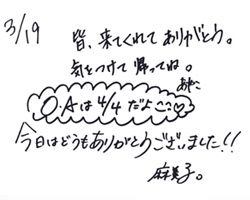 3/19
皆、来てくれて ありがとう。
気をつけて 帰ってね。
あやこ
O.Aは 4/4 だよ
今日はどうもありがとうございました!!
麻美子。